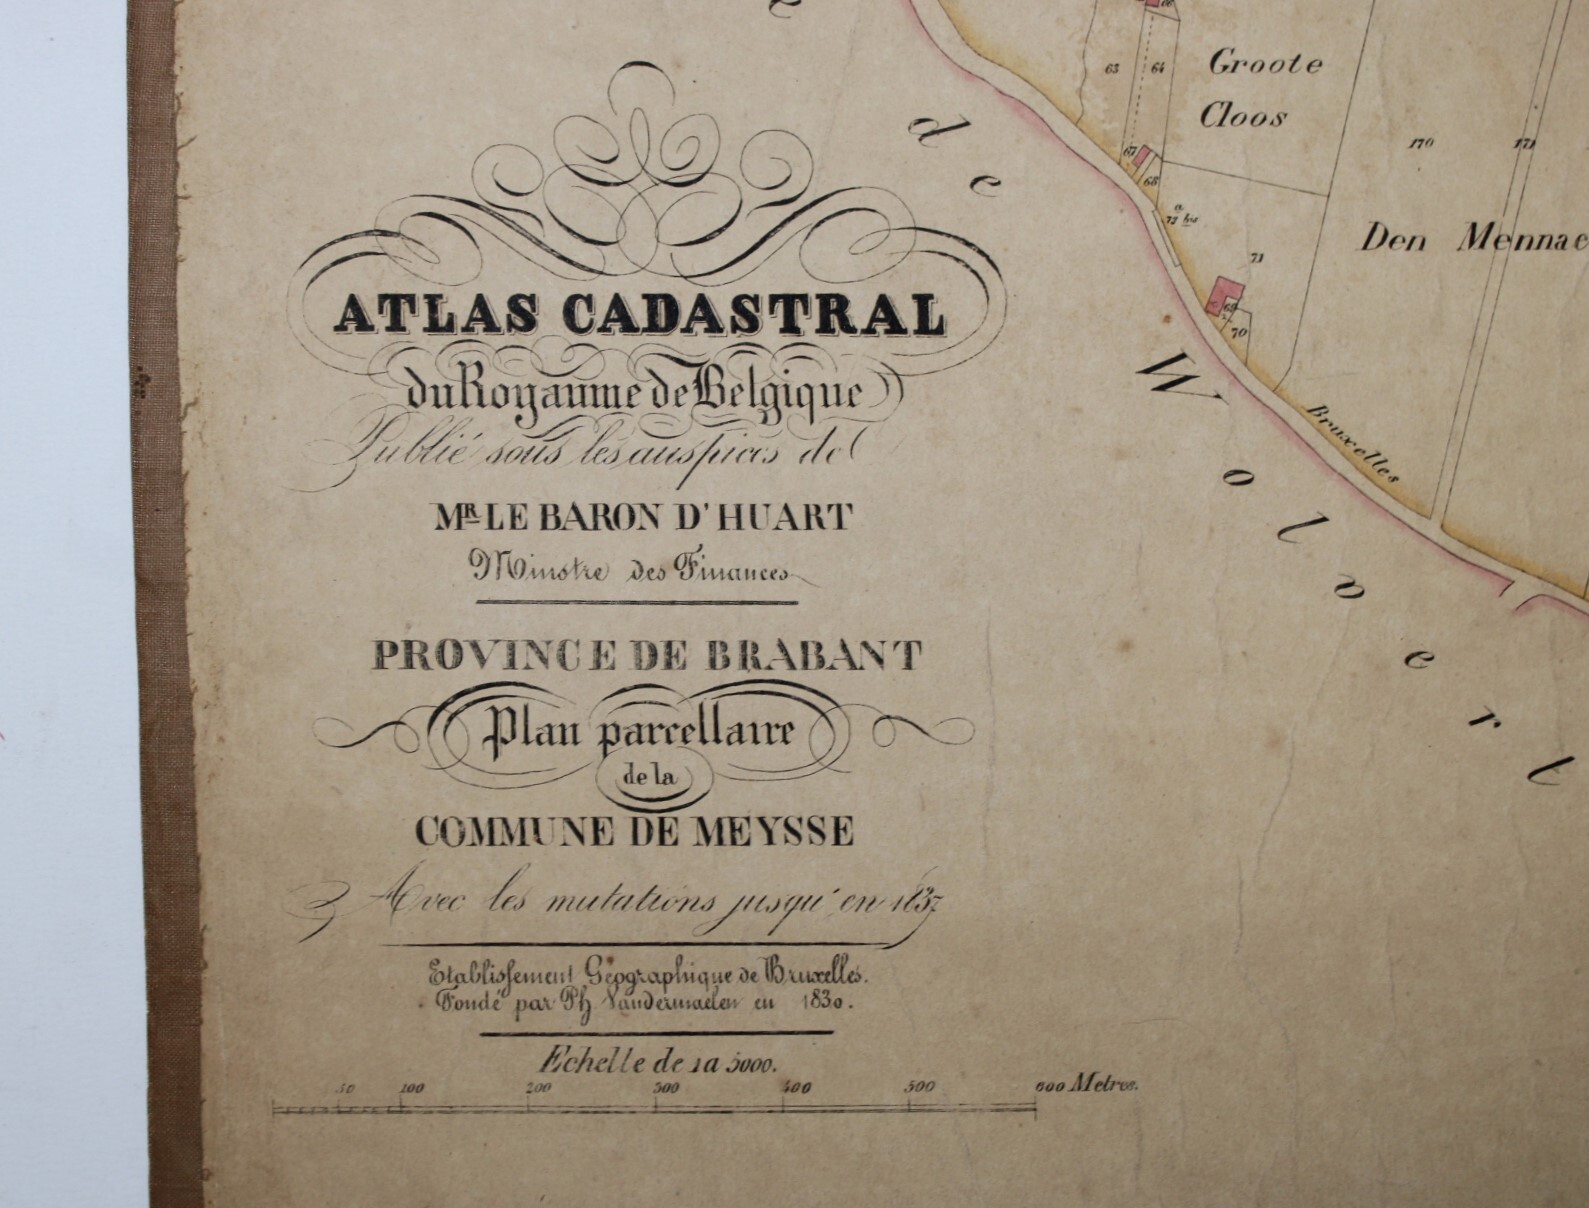 ATLAS CADASTRAL
du Royaume de Belgique
Publié sous les auspices de
MR LE BARON D'HUART
Ministre des Finances
PROVINCE DE BRABANT
Plan parcellaire
de la
COMMUNE DE MEYSSE
Avec les mutations jusqu'en 1837
Etablissement Géographique de Bruxelles.
Fondé par Ph Vandermaelen en 1830.
Echelle de 1 a 5000.
50 100 200 300 400 500 600 Metres.
de Wolvert
66
65 64
Groote
Cloos
67
68
72 bis
170 171
Den Mennae
71
69
70
Bruxelles